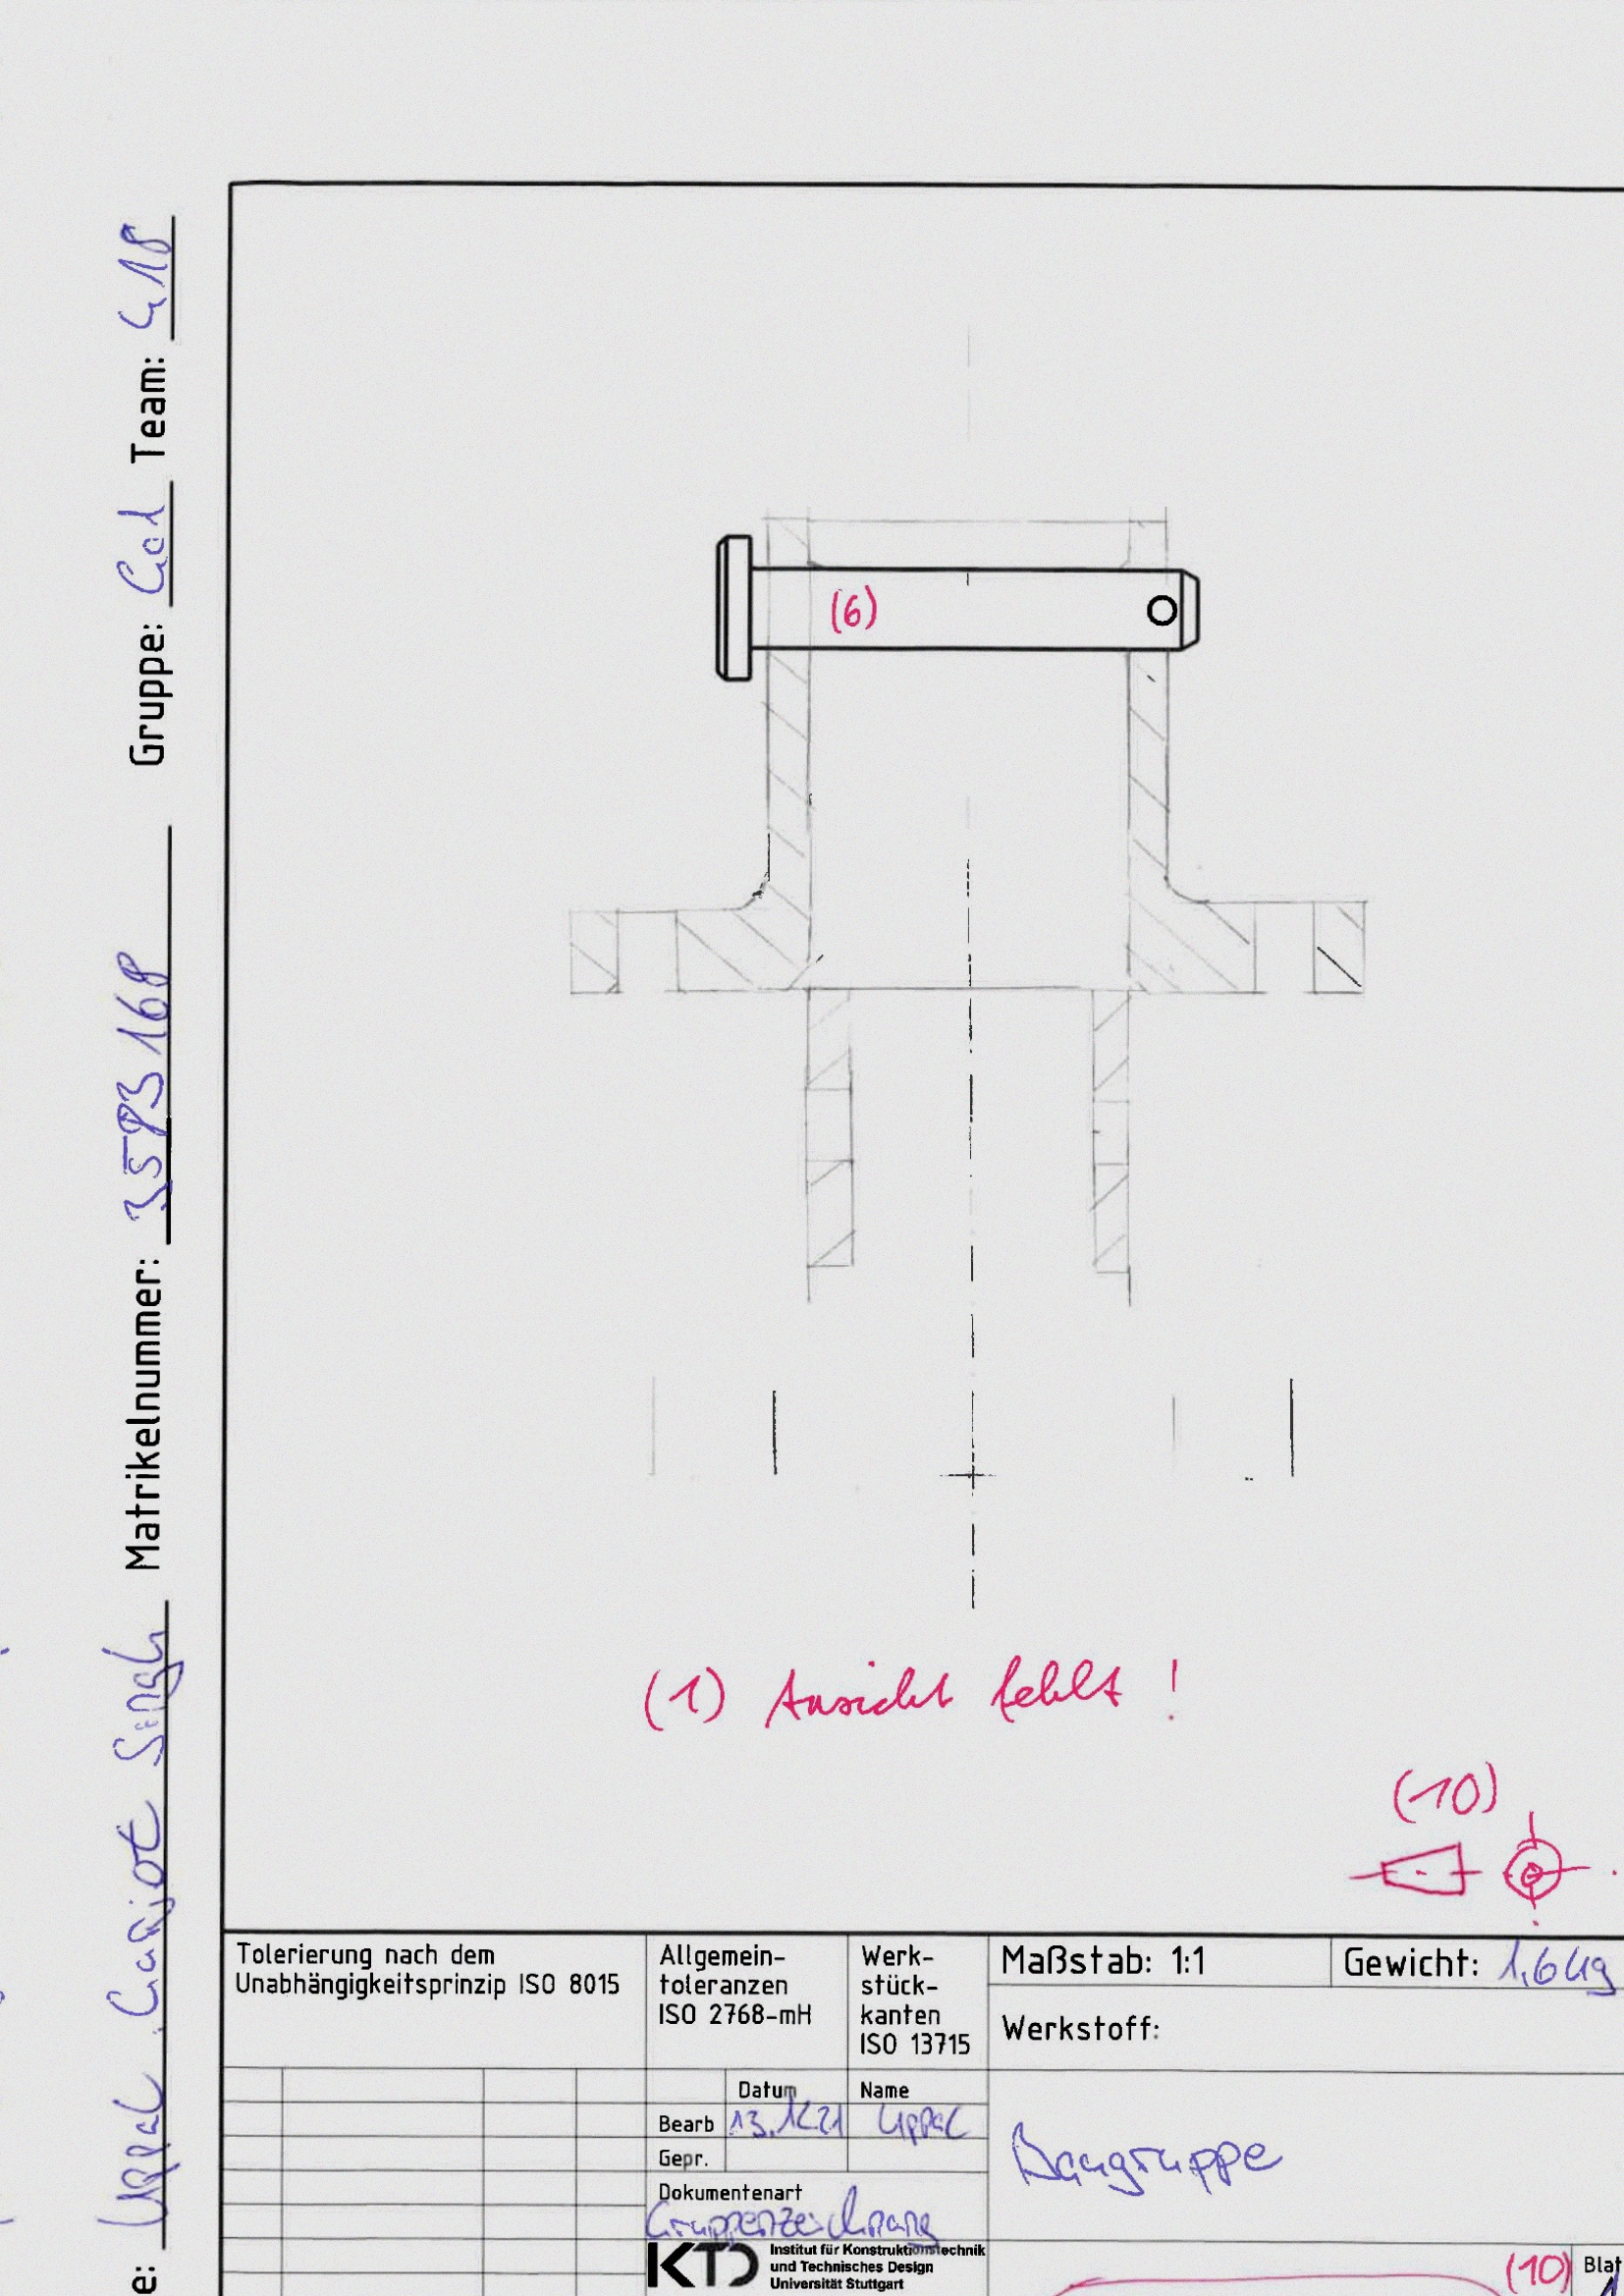 e: Uppal, Garjot Singh Matrikelnummer: 3593168 Gruppe: Go1 Team: 418
(6)
(1) Ansicht fehlt !
(10)
Tolerierung nach dem
Unabhängigkeitsprinzip ISO 8015
Allgemein-
toleranzen
ISO 2768-mH
Werk-
stück-
kanten
ISO 13715
Maßstab: 1:1
Gewicht: 1,6 kg
Werkstoff:
Datum Name
Bearb 13.12.21 Uppal
Gepr.
Baugruppe
Dokumentenart
Gruppenzeichnung
KTD
Institut für Konstruktionstechnik
und Technisches Design
Universität Stuttgart
(10)
Blat
1